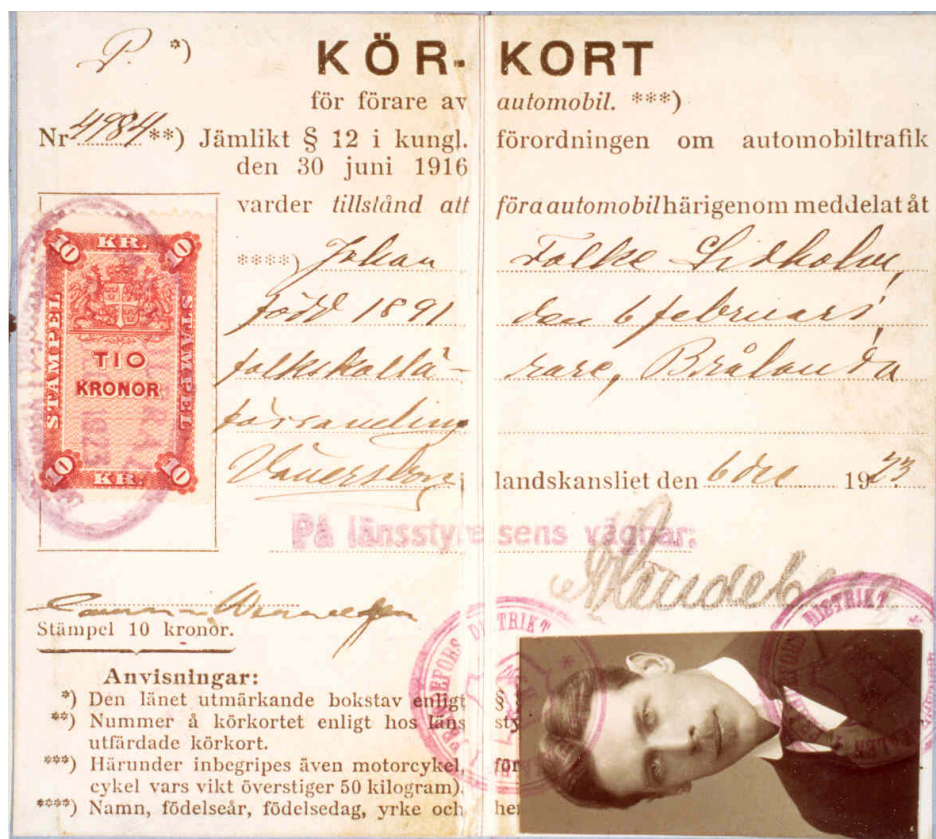 P. *)
KÖR-KORT
för förare av automobil. ***)
Nr 4984 **) Jämlikt § 12 i kungl. förordningen om automobiltrafik
den 30 juni 1916
varder tillstånd att föra automobil härigenom meddelat åt
****) Johan Folke Lidholm,
född 1891 den 6 februari,
folkskollä-rare, Brålanda
församling
Vänersborg i landskansliet den 6 dec 1923
På länsstyrelsens vägnar:
KR.
10 10
STÄMPEL STÄMPEL
TIO
KRONOR
10 10
KR.
Stämpel 10 kronor.
DISTRIKT
DISTRIKT
Anvisningar:
*) Den länet utmärkande bokstav enligt §
**) Nummer å körkortet enligt hos läns sty
utfärdade körkort.
***) Härunder inbegripes även motorcykel, för
cykel vars vikt överstiger 50 kilogram).
****) Namn, födelseår, födelsedag, yrke och he